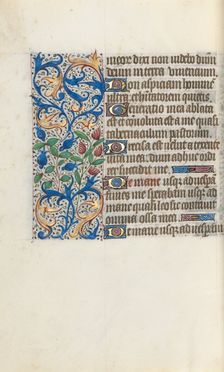 uivere dixi non videbo dum
dum in terra viventium
Non aspiciam homine
ultra et habitatorem quietis
Generatio mea ablata
est et convoluta est a me quasi
tabernaculum pastorum
Precisa est velut a texente
vita mea dum adhuc ordi
succidit me
De mane usq3 ad vespa
finies me sperabam usq3 ad
mane quasi leo sic contrivit
omnia ossa mea
De mane usq3 ad vesperam